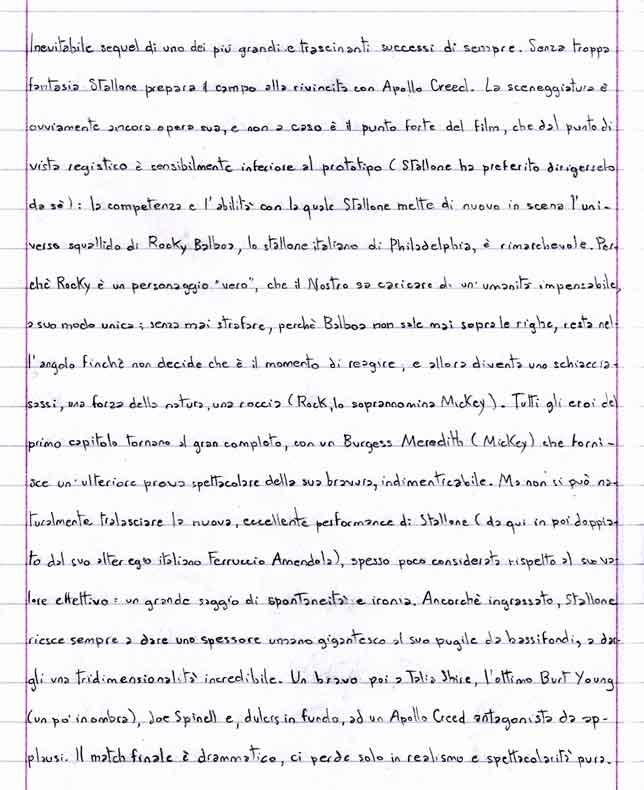 Inevitabile sequel di uno dei più grandi e trascinanti successi di sempre. Senza troppa
fantasia Stallone prepara il campo alla rivincita con Apollo Creed. La sceneggiatura è
ovviamente ancora opera sua, e non a caso è il punto forte del film, che dal punto di
vista registico è sensibilmente inferiore al prototipo (Stallone ha preferito dirigerselo
da sè): la competenza e l'abilità con la quale Stallone mette di nuovo in scena l'uni-
verso squallido di Rocky Balboa, lo stallone italiano di Philadelphia, è rimarchevole. Per-
chè Rocky è un personaggio "vero", che il Nostro sa caricare di un'umanità impensabile,
a suo modo unica; senza mai strafare, perchè Balboa non sale mai sopra le righe, resta nel-
l'angolo finchè non decide che è il momento di reagire, e allora diventa uno schiaccia-
sassi, una forza della natura, una roccia (Rock, lo soprannomina Mickey). Tutti gli eroi del
primo capitolo tornano al gran completo, con un Burgess Meredith (Mickey) che forni-
sce un'ulteriore prova spettacolare della sua bravura, indimenticabile. Ma non si può na-
turalmente tralasciare la nuova, eccellente performance di Stallone (da qui in poi doppia-
to dal suo alter ego italiano Ferruccio Amendola), spesso poco considerata rispetto al suo va-
lore effettivo: un grande saggio di spontaneità e ironia. Ancorchè ingrassato, Stallone
riesce sempre a dare uno spessore umano gigantesco al suo pugile da bassifondi, a dar-
gli una tridimensionalità incredibile. Un bravo poi a Talia Shire, l'ottimo Burt Young
(un po' in ombra), Joe Spinell e, dulcis in fundo, ad un Apollo Creed antagonista da ap-
plausi. Il match finale è drammatico, ci perde solo in realismo e spettacolarità pura.